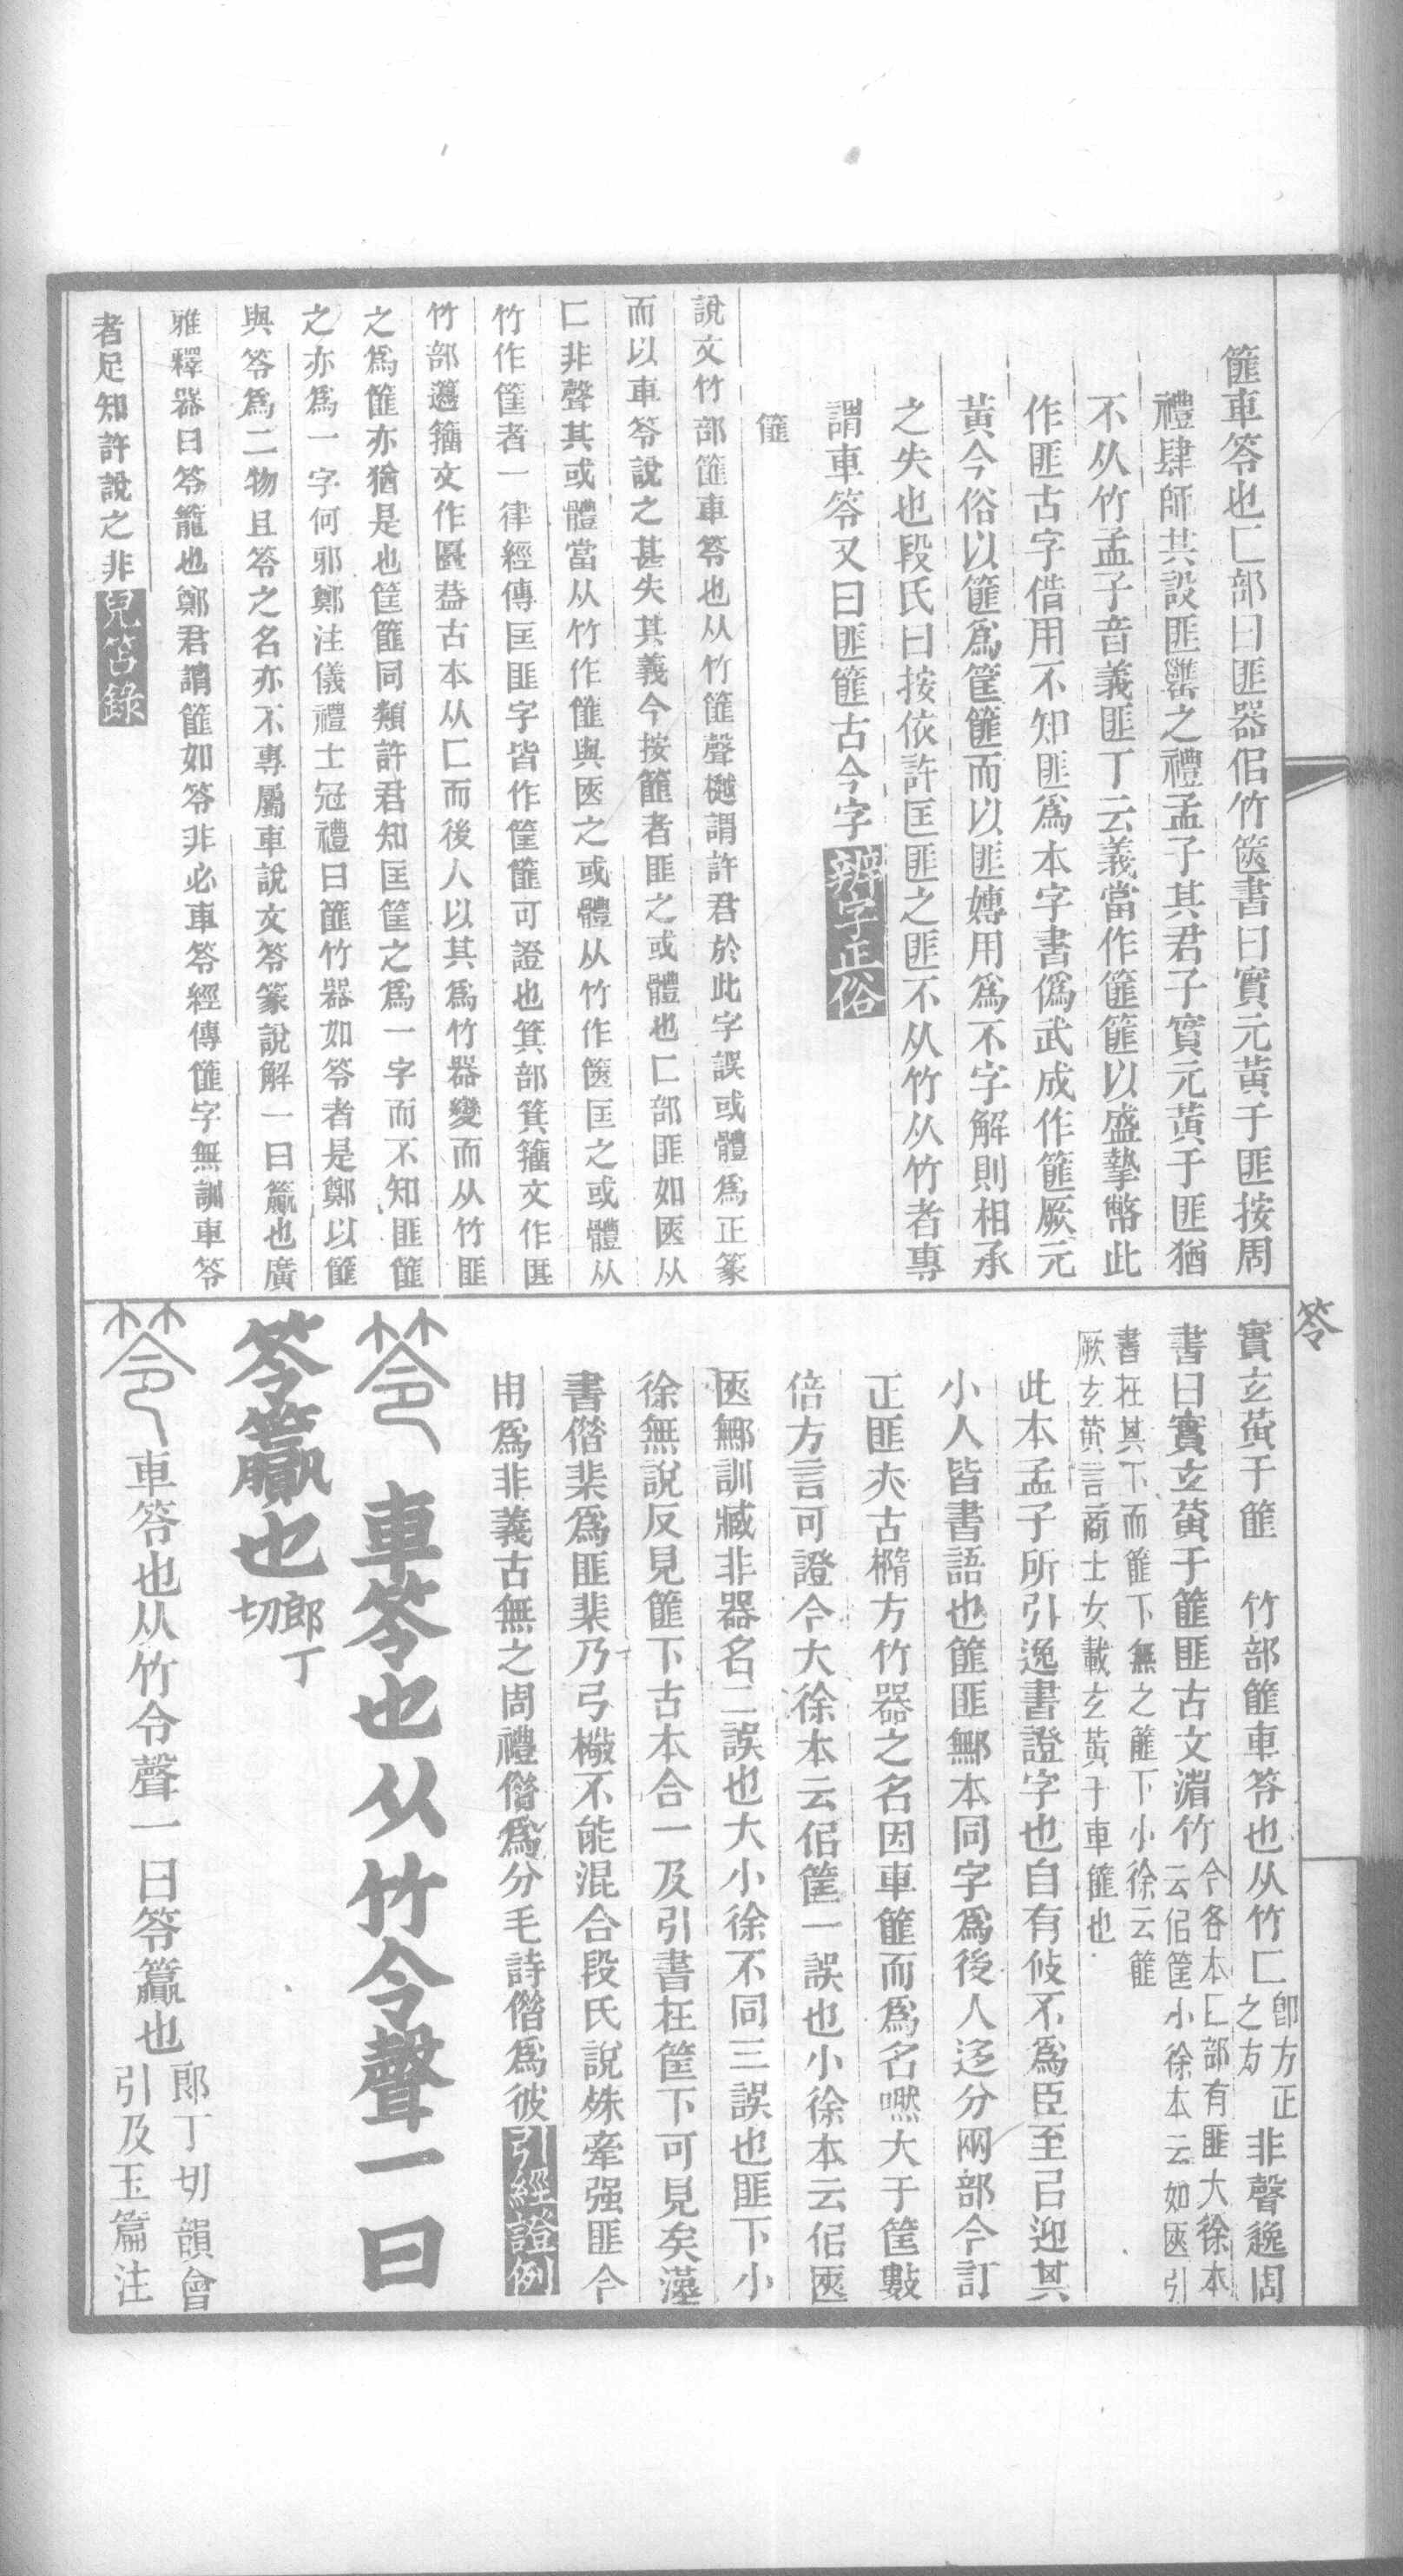 篚車笭也匚部曰匪器佀竹篋書曰實元黃于匪按周
禮肆師共設匪罋之禮孟子其君子實元黃于匪猶
不从竹孟子音義匪丁云義當作篚篚以盛摯幣此
作匪古字借用不知匪爲本字書僞武成作篚厥元
黃今俗以篚爲筐篚而以匪嫥用爲不字解則相承
之失也段氏曰按依許匡匪之匪不从竹从竹者專
謂車笭又曰匪篚古今字辨字正俗
篚
說文竹部篚車笭也从竹篚聲樾謂許君於此字誤或體爲正篆
而以車笭說之甚失其義今按篚者匪之或體也匚部匪如匧从
匚非聲其或體當从竹作篚與匧之或體从竹作篋匡之或體从
竹作筐者一律經傳匡匪字皆作筐篚可證也箕部箕籒文作匩
竹部籩籒文作匶葢古本从匚而後人以其爲竹器變而从竹匪
之爲篚亦猶是也筐篚同類許君知匡筐之爲一字而不知匪篚
之亦爲一字何邪鄭注儀禮士冠禮曰篚竹器如笭者是鄭以篚
與笭爲二物且笭之名亦不專屬車說文笭篆說解一曰籯也廣
雅釋器曰笭籠也鄭君謂篚如笭非必車笭經傳篚字無訓車笭
者足知許說之非兒笘錄
笭
實玄黃于篚　竹部篚車笭也从竹匚卽方正之方非聲逸周
書曰實玄黃于篚匪古文湄竹今各本匚部有匪大徐本云佀筐小徐本云如匧引
書在其下而篚下無之篚下小徐云篚
厥玄黃言商士女載玄黃于車篚也
此本孟子所引逸書證字也自有攸不爲臣至㠯迎其
小人皆書語也篚匪鄦本同字爲後人迻分兩部今訂
正匪亦古橢方竹器之名因車篚而爲名嘫大于筐數
倍方言可證今大徐本云佀筐一誤也小徐本云佀匧
匧鄦訓臧非器名二誤也大小徐不同三誤也匪下小
徐無說反見篚下古本合一及引書在筐下可見矣漢
書偺棐爲匪棐乃弓檄不能混合段氏說殊牽强匪今
用爲非義古無之周禮偺爲分毛詩偺爲彼引經證例
笭　車笭也从竹令聲一曰
笭籯也郎丁切
笭　車笭也从竹令聲一曰笭籯也郎丁切韻會引及玉篇注